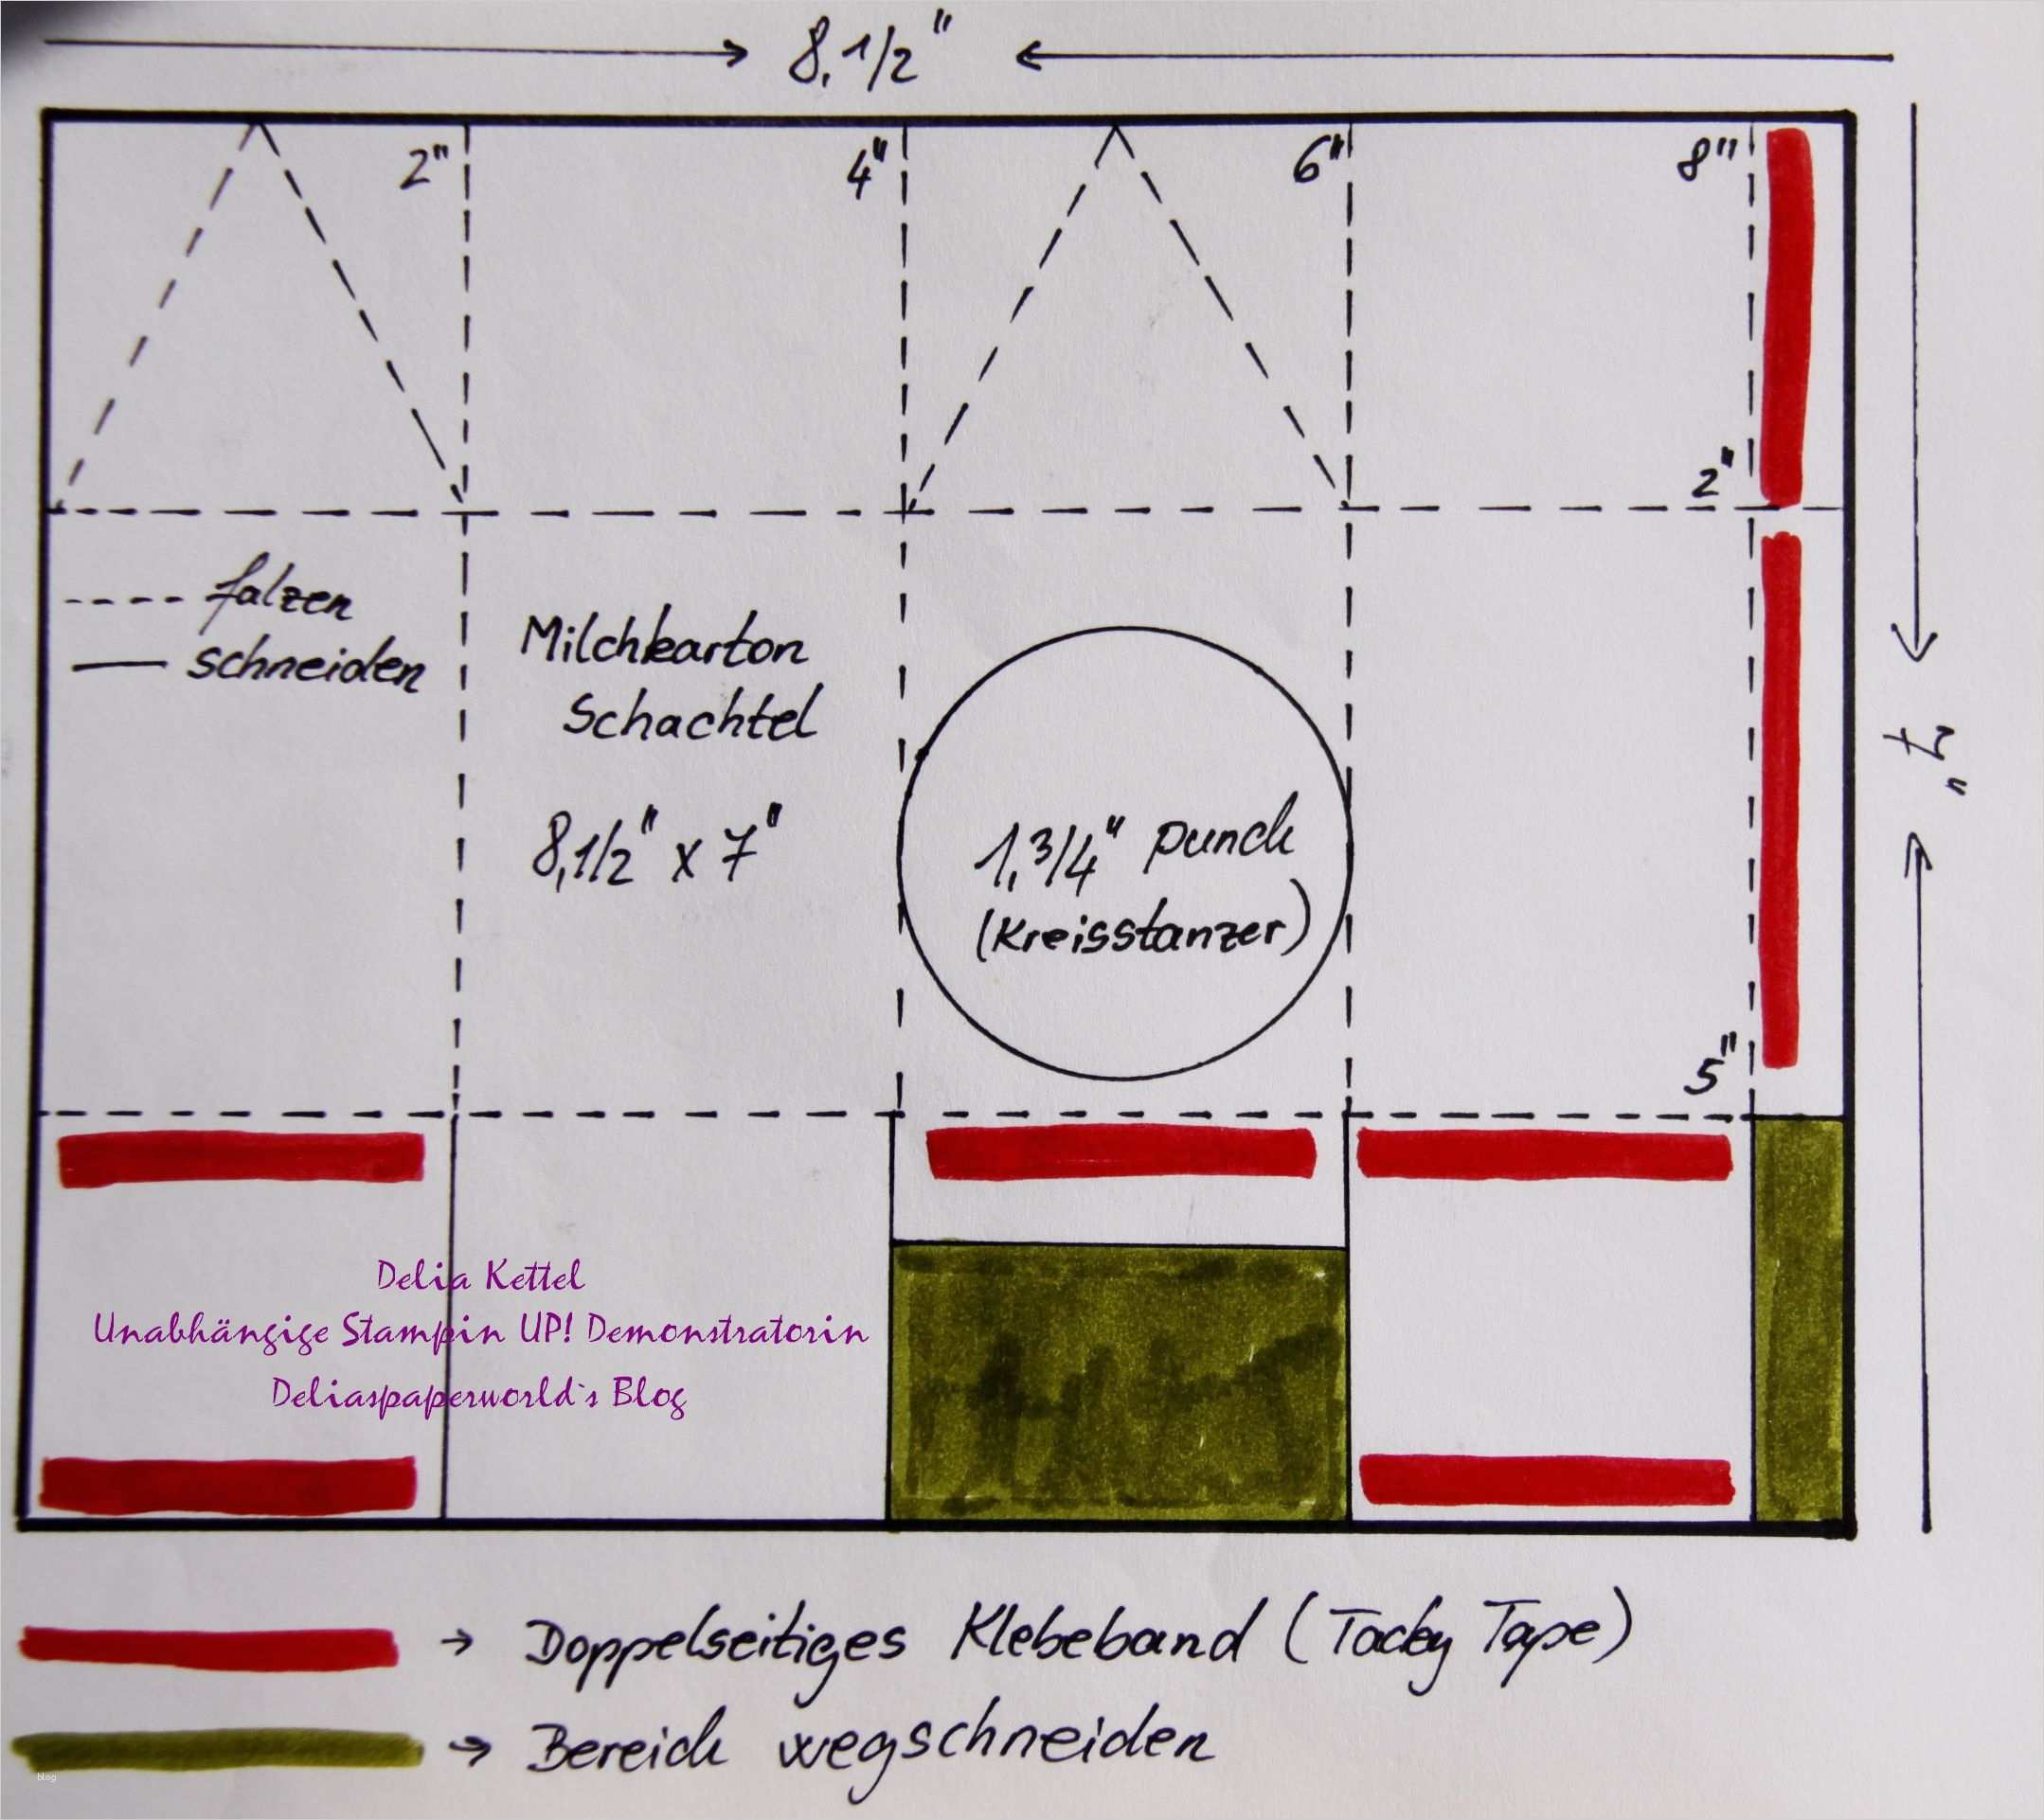 8,1/2"
2"
4"
6"
8"
2"
---- falzen
— schneiden
Milchkarton
Schachtel
8,1/2" x 7"
1,3/4" punch
(Kreisstanzer)
7"
5"
Delia Kettel
Unabhängige Stampin UP! Demonstratorin
Deliaspaperworld`s Blog
→ Doppelseitiges Klebeband (Tacky Tape)
→ Bereich wegschneiden
blog